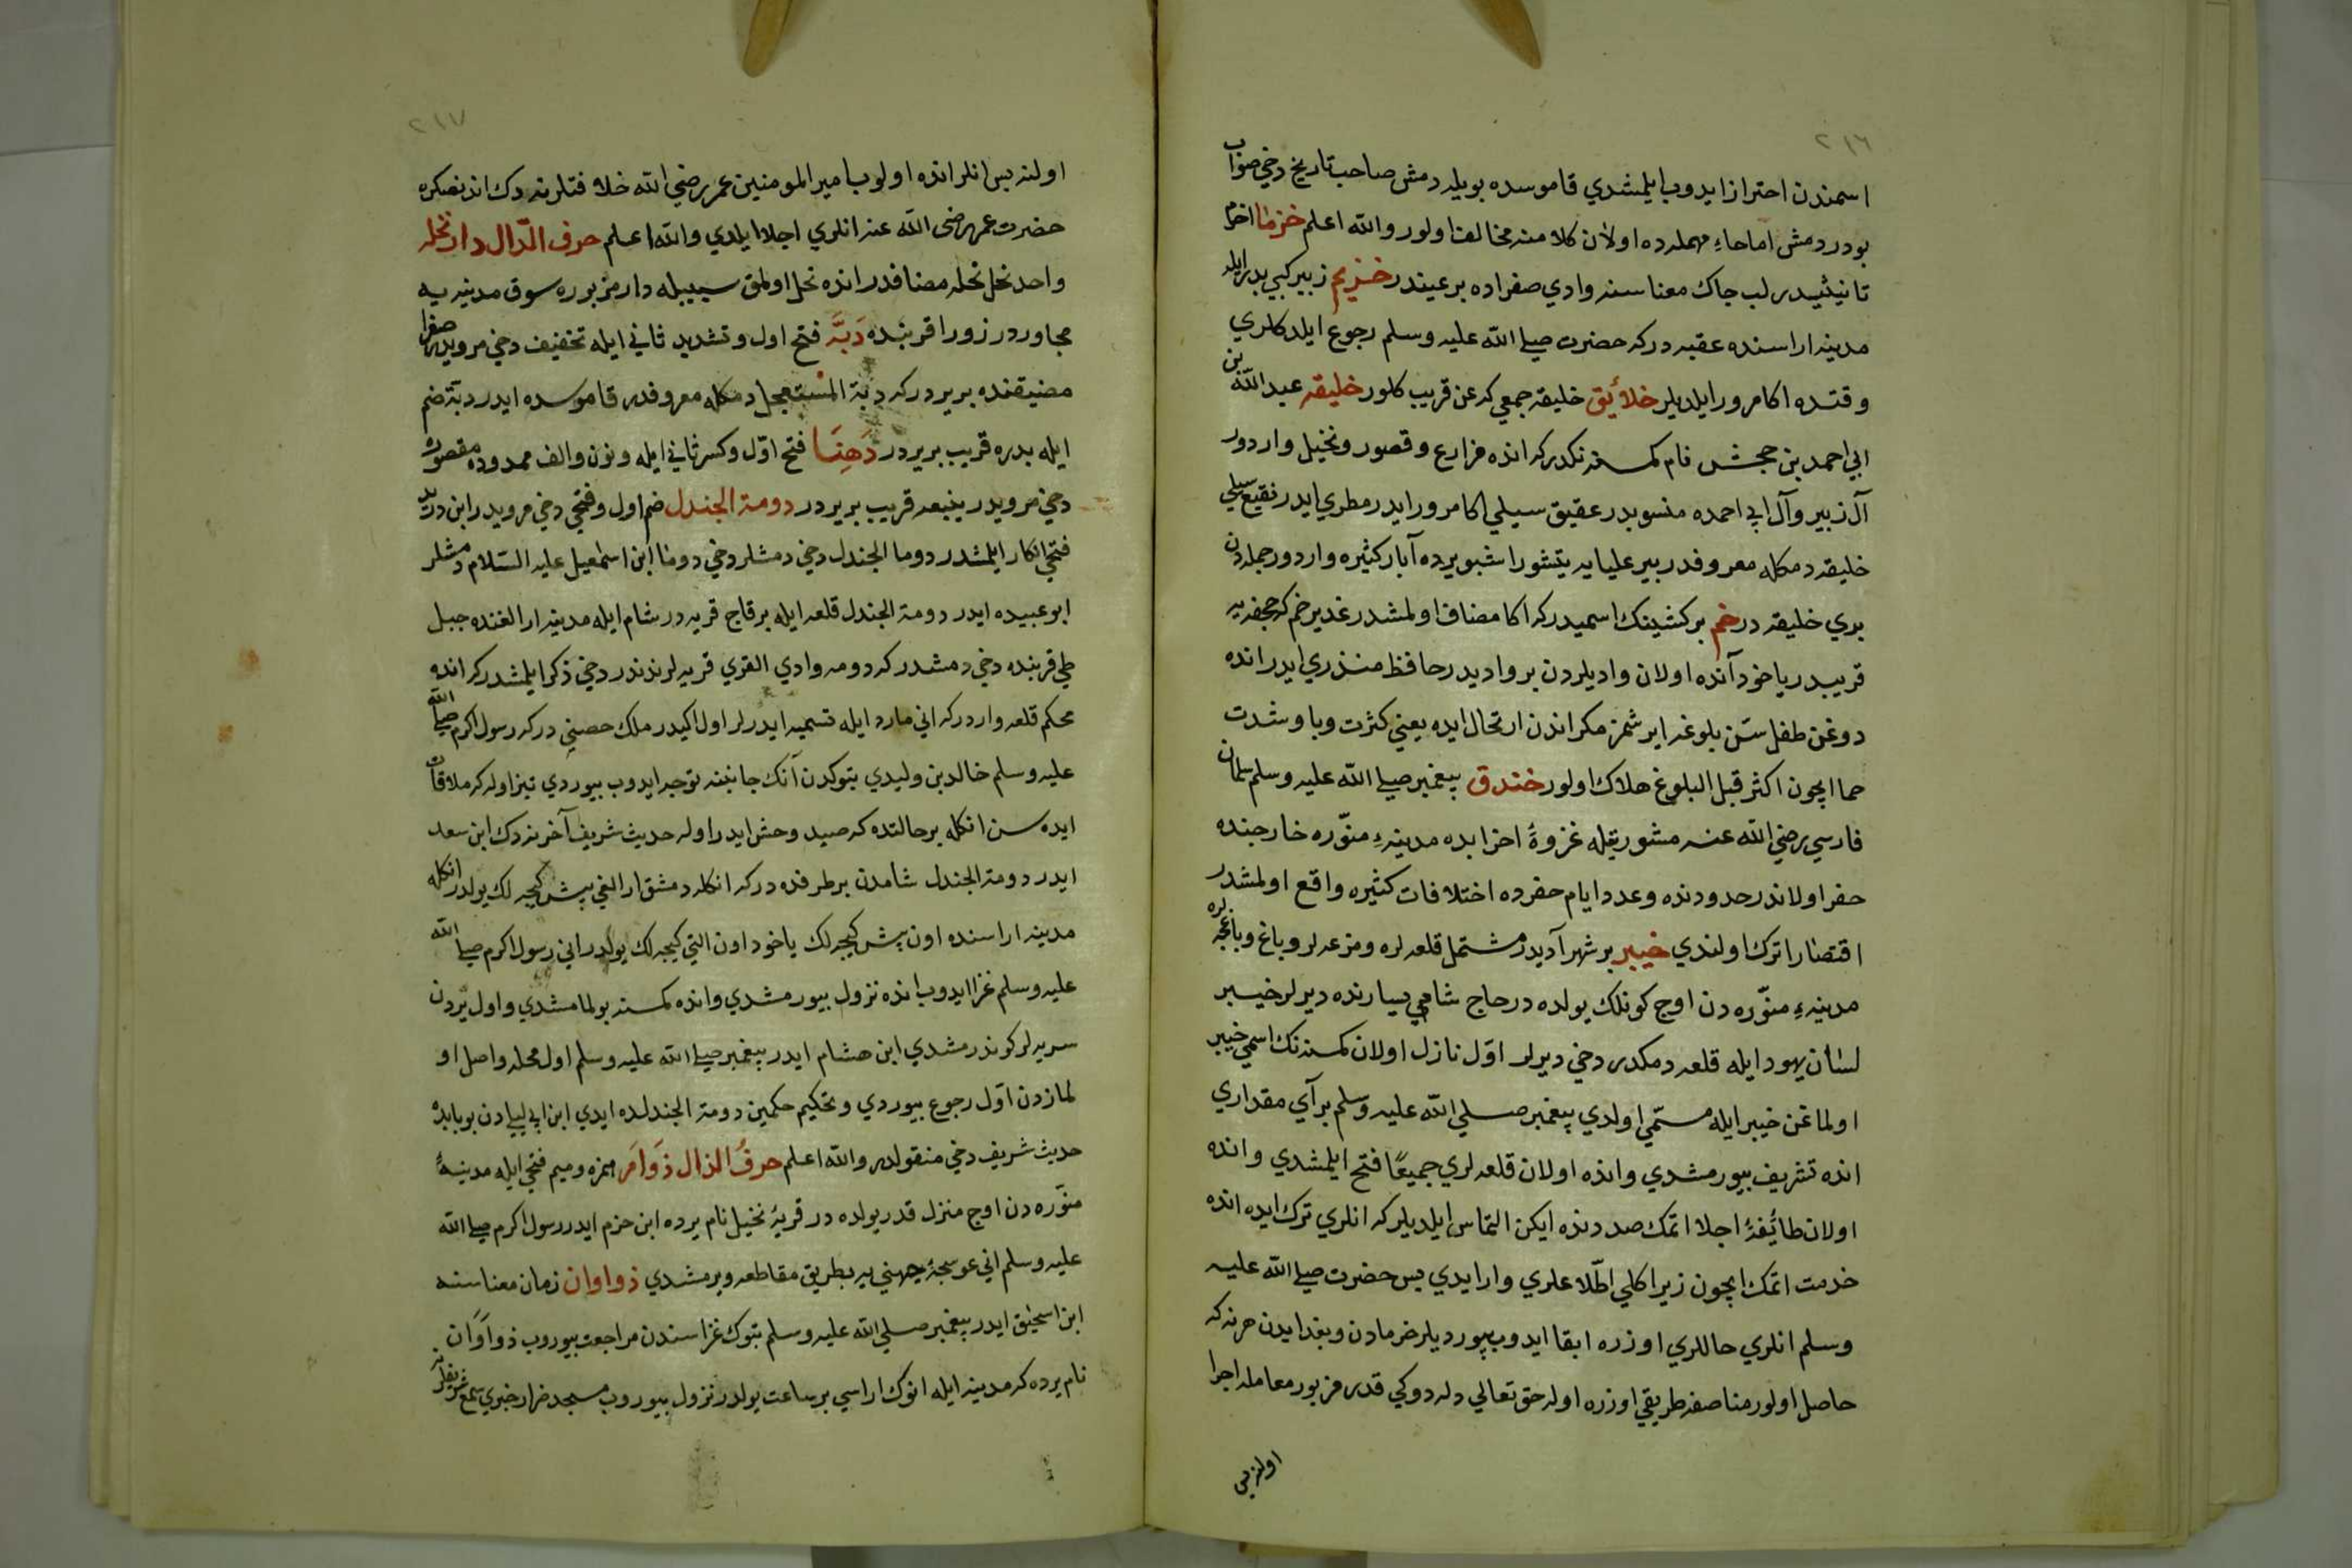 ٢١٦
اسمندن احتراز ايدوب ايلمشدي قاموسده بويله دمش صاحب تاريخ دخي صواب
بودر دمش اما حاء مهمله ده اولان كلامنه مخالف اولور والله اعلم خزما اخزم
تانيثيدر لب چاك معناسنه وادي صفراده بر عيندر خزيم زبير كبي بدر ايله
مدينه اراسنده عقبه در كه حضرت صلي الله عليه وسلم رجوع ايلدكلري
وقتده اكا مرور ايلديلر خلائق خليقه جمعي كه عن قريب كلور خليقه عبد الله بن
ابي احمد بن جحش نام كمسنه نكدر كه انده مزارع وقصور ونخيل واردور
آل زبير وآل ابي احمده منسوبدر عقيق سيلي اكا مرور ايدر مطري ايدر نقيع سيلي
خليقه دمكله معروفدر بير عليايه يتشور اشبو يرده آبار كثيره واردور جمله دن
بري خليقه در خم بر كشينك اسميدر كه اكا مضاف اولمشدر غدير خم كه جحفه يه
قريبدر ياخود آنده اولان واديلردن بر واديدر حافظ منذري ايدر انده
دوغن طفل سن بلوغه ايرشمز مكر اندن ارتحال ايده يعني كثرت وبا وشدت
حما ايچون اكثر قبل البلوغ هلاك اولور خندق پيغمبر صلي الله عليه وسلم سلمان
فارسي رضي الله عنه مشورتيله غزوۀ احزابده مدينۀ منوّره خارجنده
حفر اولاندر حدودنده وعدد ايام حفرده اختلافات كثيره واقع اولمشدر
اقتصارا ترك اولندي خيبر بر شهر آديدر مشتمل قلعه لره ومزرعه لر وباغ وباغچه لره
مدينۀ منوّره دن اوچ كونلك يولده در حاج شامي يسارنده ديرلر خيبر
لسان يهود ايله قلعه دمكدر دخي ديرلر اوّل نازل اولان كمسنه نك اسمي خيبر
اولماغن خيبر ايله مسمّي اولدي پيغمبر صلي الله عليه وسلم بر آي مقداري
انده تشريف بيورمشدي وانده اولان قلعه لري جميعًا فتح ايلمشدي وانده
اولان طائفۀ اجلا اتمك صددنده ايكن التماس ايلديلر كه انلري ترك ايده انده
خدمت اتمك ايچون زيرا كلي اطّلاعلري وار ايدي پس حضرت صلي الله عليه
وسلم انلري حاللري اوزره ابقا ايدوب بيورديلر خرمادن وبغدايدن هر نه كه
حاصل اولور مناصفه طريقي اوزره اوله حق تعالي دله دوكي قدر مزبور معامله اجرا
اولنه پس
٢١٧
اولنه پس انلر انده اولوب امير المومنين عمر رضي الله خلافتلرينه دك اندنصكره
حضرت عمر رضي الله عنه انلري اجلا ايلدي والله اعلم حرف الدّال دار نخله
واحد نخل نخله مضافدر انده نخل اولمق سببيله دار مزبوره سوق مدينه يه
مجاوردر زورا قربنده دَبَّه فتح اول وتشديد ثاني ايله تخفيف دخي مرويدر صفرا
مضيقنده بر يردر كه دبة المستعجل دمكله معروفدر قاموسده ايدر دبّة ضم
ايله بدره قريب بر يردر دَهِنَا فتح اوّل وكسر ثاني ايله ونون والف ممدوده مقصوره
دخي مرويدر ينبعه قريب بر يردر دومة الجندل ضم اول وفتحي دخي مرويدر ابن دريد
فتحي انكار ايلمشدر دوما الجندل دخي دمشلر دخي دوما ابن اسمعيل عليه السّلام دمشلر
ابو عبيده ايدر دومة الجندل قلعه ايله بر قاچ قريه در شام ايله مدينه ارالغنده جبل
طي قربنده دخي دمشدر كه دومه وادي القري قريه لرندندر دخي ذكر ايلمشدر كه انده
محكم قلعه واردر كه اني مارد ايله تسميه ايدرلر اول اكيدر ملك حصني در كه رسول اكرم صلي الله
عليه وسلم خالد بن وليدي تبوكدن آنك جانبنه توجيه ايدوب بيوردي تيز اوله كه ملاقات
ايده سن انكله بر حالتده كه صيد وحش ايدر اوله حديث شريف آخرينه دك ابن سعد
ايدر دومة الجندل شامدن بر طرفده در كه انكله دمشق ارالغي بش كيجه لك يولدر انكله
مدينه اراسنده اون بش كيجه لك ياخود اون التي كيجه لك يولدر اني رسول اكرم صلي الله
عليه وسلم غزا ايدوب انده نزول بيورمشدي وانده كمسنه بولمامشدي واول يردن
سريه لر كوندرمشدي ابن هشام ايدر پيغمبر صلي الله عليه وسلم اول محله واصل او
لمازدن اوّل رجوع بيوردي وتحكيم حكمين دومة الجندلده ايدي ابن ابي ليليادن بو بابده
حديث شريف دخي منقولدر والله اعلم حرفُ الذال ذَوامَر همزه وميم فتحي ايله مدينۀ
منوّره دن اوچ منزل قدر يولده در قريۀ نخيل نام يرده ابن حزم ايدر رسول اكرم صلي الله
عليه وسلم اني عوسجۀ جهني يه بطريق مقاطعه ويرمشدي ذواوان زمان معناسنه
ابن اسحق ايدر پيغمبر صلي الله عليه وسلم تبوك غزاسندن مراجعت بيوروب ذواوَان
نام يرده كه مدينه ايله انوك اراسي بر ساعت يولدر نزول بيوروب مسجد ضرار خبري سمع شريفلرينه